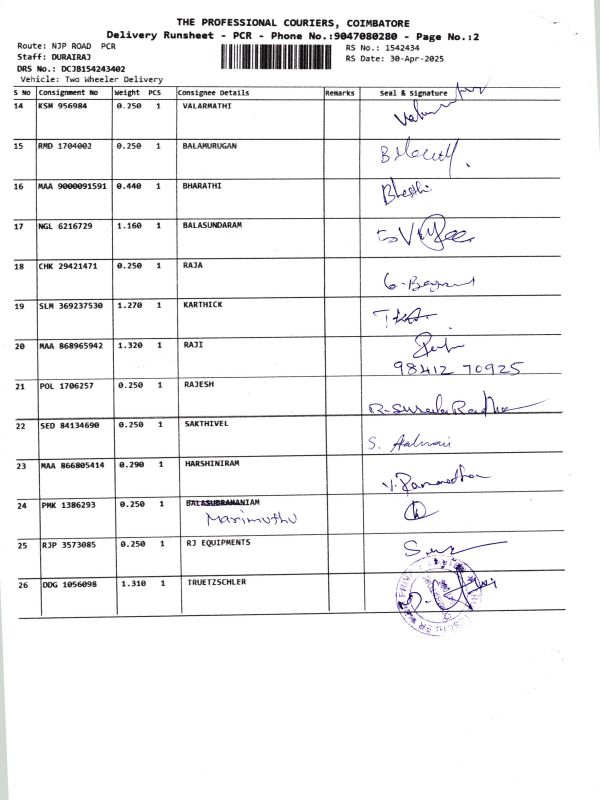 THE PROFESSIONAL COURIERS, COIMBATORE
Delivery Runsheet - PCR - Phone No.:9047080280 - Page No.:2
Route: NJP ROAD PCR RS No.: 1542434
Staff: DURAIRAJ RS Date: 30-Apr-2025
DRS No.: DCJB154243402
Vehicle: Two Wheeler Delivery
S No Consignment No Weight PCS Consignee Details Remarks Seal & Signature
14 KSM 956984 0.250 1 VALARMATHI
15 RMD 1704002 0.250 1 BALAMURUGAN
16 MAA 9000091591 0.440 1 BHARATHI
17 NGL 6216729 1.160 1 BALASUNDARAM
18 CHK 29421471 0.250 1 RAJA
19 SLM 369237530 1.270 1 KARTHICK
20 MAA 868965942 1.320 1 RAJI
98412 70925
21 POL 1706257 0.250 1 RAJESH
22 SED 84134690 0.250 1 SAKTHIVEL
23 MAA 866805414 0.290 1 HARSHINIRAM
24 PMK 1386293 0.250 1 BALASUBRAMANIAM
Marimuthu
25 RJP 3573085 0.250 1 RJ EQUIPMENTS
26 DDG 1056098 1.310 1 TRUETZSCHLER